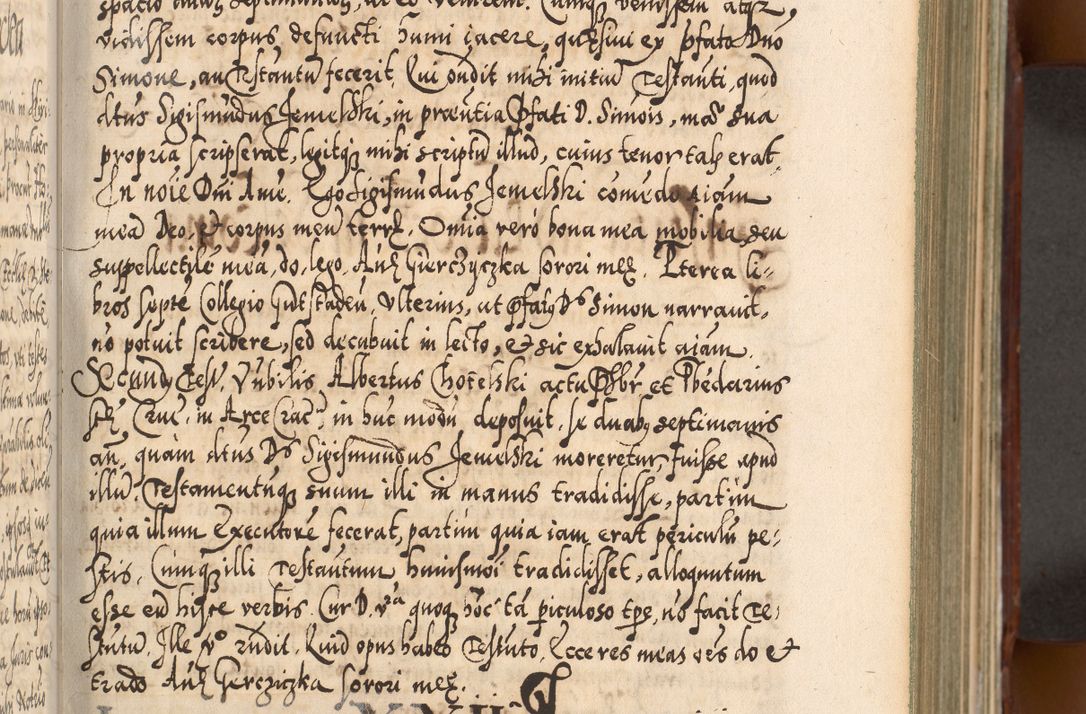 vidissem corpus defuncti humi iacere, quęsiui ex pfato Dno
Simone, an Testantũ fecerit. Qui oñdit mihi initiũ Testanti, quod
dtus Sigismũdus Jemelski, in pręntia Pfati D. Simois, mãs sua
propria scripserat, legitq; mihi scriptũ illud, cuius tenor talis erat,
In noie Dni Ame. Ego Sigismũdus Jemelski comedo aiam
meã Deo, et corpus meũ terrę. Omia verò bona mea mobilia, seu
suppellectilẽ meã, do, lego, Annę Gierczyczka sorori meę. Pterea li-
bros septẽ Collegio
Vlterius, ut pfatus Ds Simon narrauit,
nõ potuit scribere, sed decubuit in lecto, et sic exhalauit aiam.
Secundus Test. Vnbilis Albertus Chotelski actu Pbr et Pbedarius
Crac. in Arce Crac. in huc modũ deposuit, se duabus septimanis
añ, quàm dtus Ds Sigismundus Jemelski moreretur, fuisse apud
illũ, Testamentũq; suum illi in manus tradidisse, partim
quia illum Executorẽ fecerat, partim quia iam erat periculũ pe-
stis. Cumq; illi Testantum huiusmoi tradidisset, alloquutum
esse eũ hisce verbis. Cur D. vra quoq; hoc tã piculoso tpe, nõ facit Te-
stntũ. Ille vo rñdit. Quid opus habeo Testnto, Ecce res meas oẽs do et
trado Annę Gercziczka sorori meę.